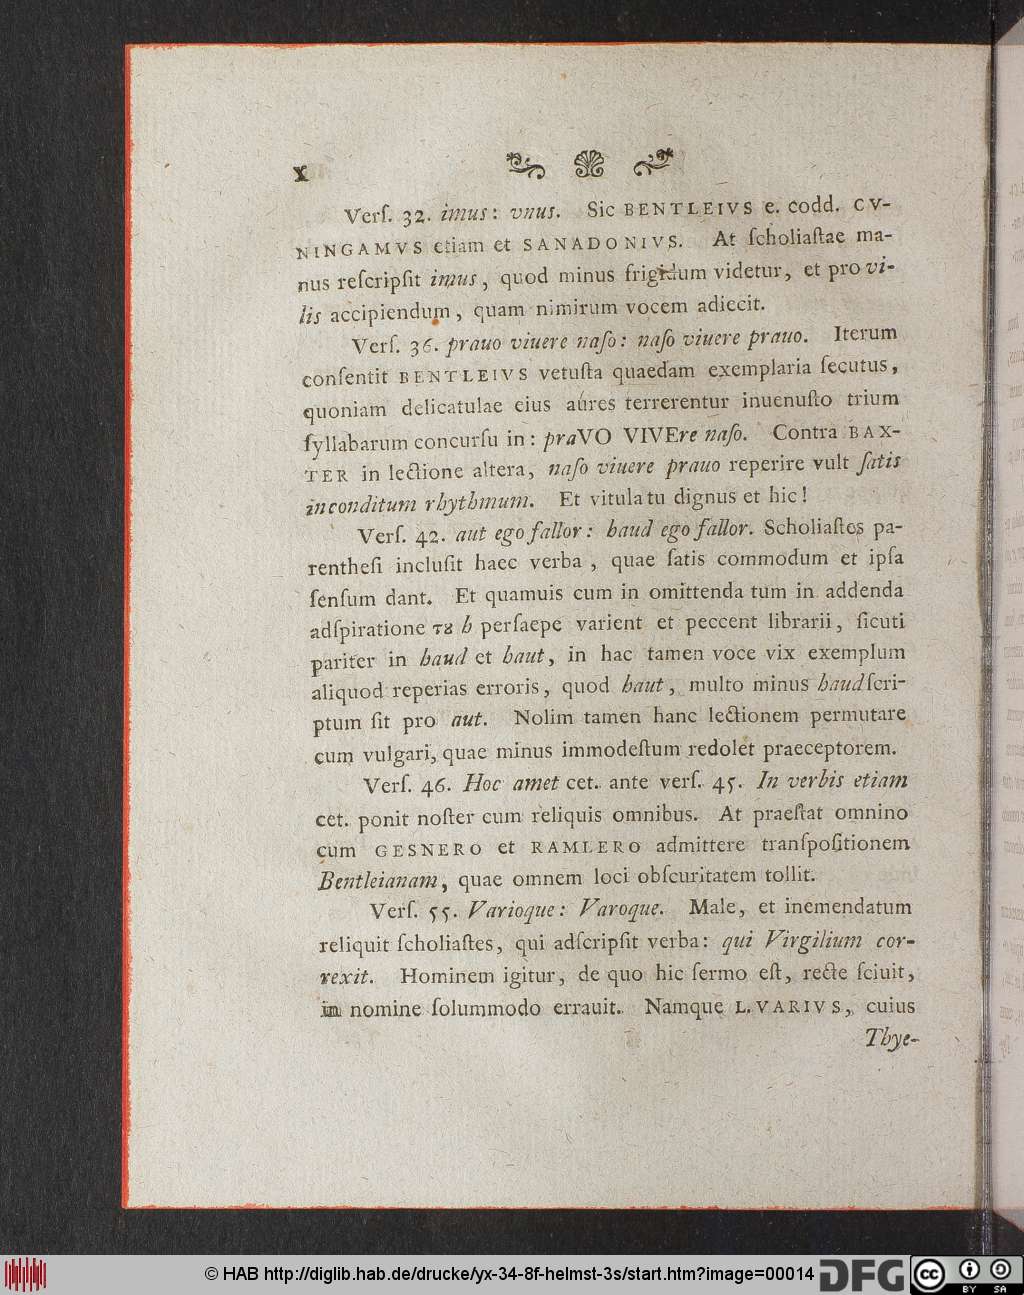 X
Verſ. 32. imus: vnus. Sic BENTLEIVS e. codd. CV-
NINGAMVS etiam et SANADONIVS. At ſcholiaſtae ma-
nus reſcripſit imus, quod minus frigidum videtur, et pro vi-
lis accipiendum, quam nimirum vocem adiecit.
Verſ. 36. prauo viuere naſo: naſo viuere prauo. Iterum
conſentit BENTLEIVS vetuſta quaedam exemplaria ſecutus,
quoniam delicatulae eius aures terrerentur inuenuſto trium
ſyllabarum concurſu in: praVO VIVEre naſo. Contra BAX-
TER in lectione altera, naſo viuere prauo reperire vult ſatis
inconditum rhythmum. Et vitula tu dignus et hic!
Verſ. 42. aut ego fallor: haud ego fallor. Scholiaſtes pa-
rentheſi incluſit haec verba, quae ſatis commodum et ipſa
ſenſum dant. Et quamuis cum in omittenda tum in addenda
adſpiratione τȣ h perſaepe varient et peccent librarii, ſicuti
pariter in haud et haut, in hac tamen voce vix exemplum
aliquod reperias erroris, quod haut, multo minus haud ſcri-
ptum ſit pro aut. Nolim tamen hanc lectionem permutare
cum vulgari, quae minus immodeſtum redolet praeceptorem.
Verſ. 46. Hoc amet cet. ante verſ. 45. In verbis etiam
cet. ponit noſter cum reliquis omnibus. At praeſtat omnino
cum GESNERO et RAMLERO admittere tranſpoſitionem
Bentleianam, quae omnem loci obſcuritatem tollit.
Verſ. 55. Varioque: Varoque. Male, et inemendatum
reliquit ſcholiaſtes, qui adſcripſit verba: qui Virgilium cor-
rexit. Hominem igitur, de quo hic ſermo eſt, recte ſciuit,
in nomine ſolummodo errauit. Namque L. VARIVS, cuius
Thye-
© HAB http://diglib.hab.de/drucke/yx-34-8f-helmst-3s/start.htm?image=00014
DFG
cc
BY SA